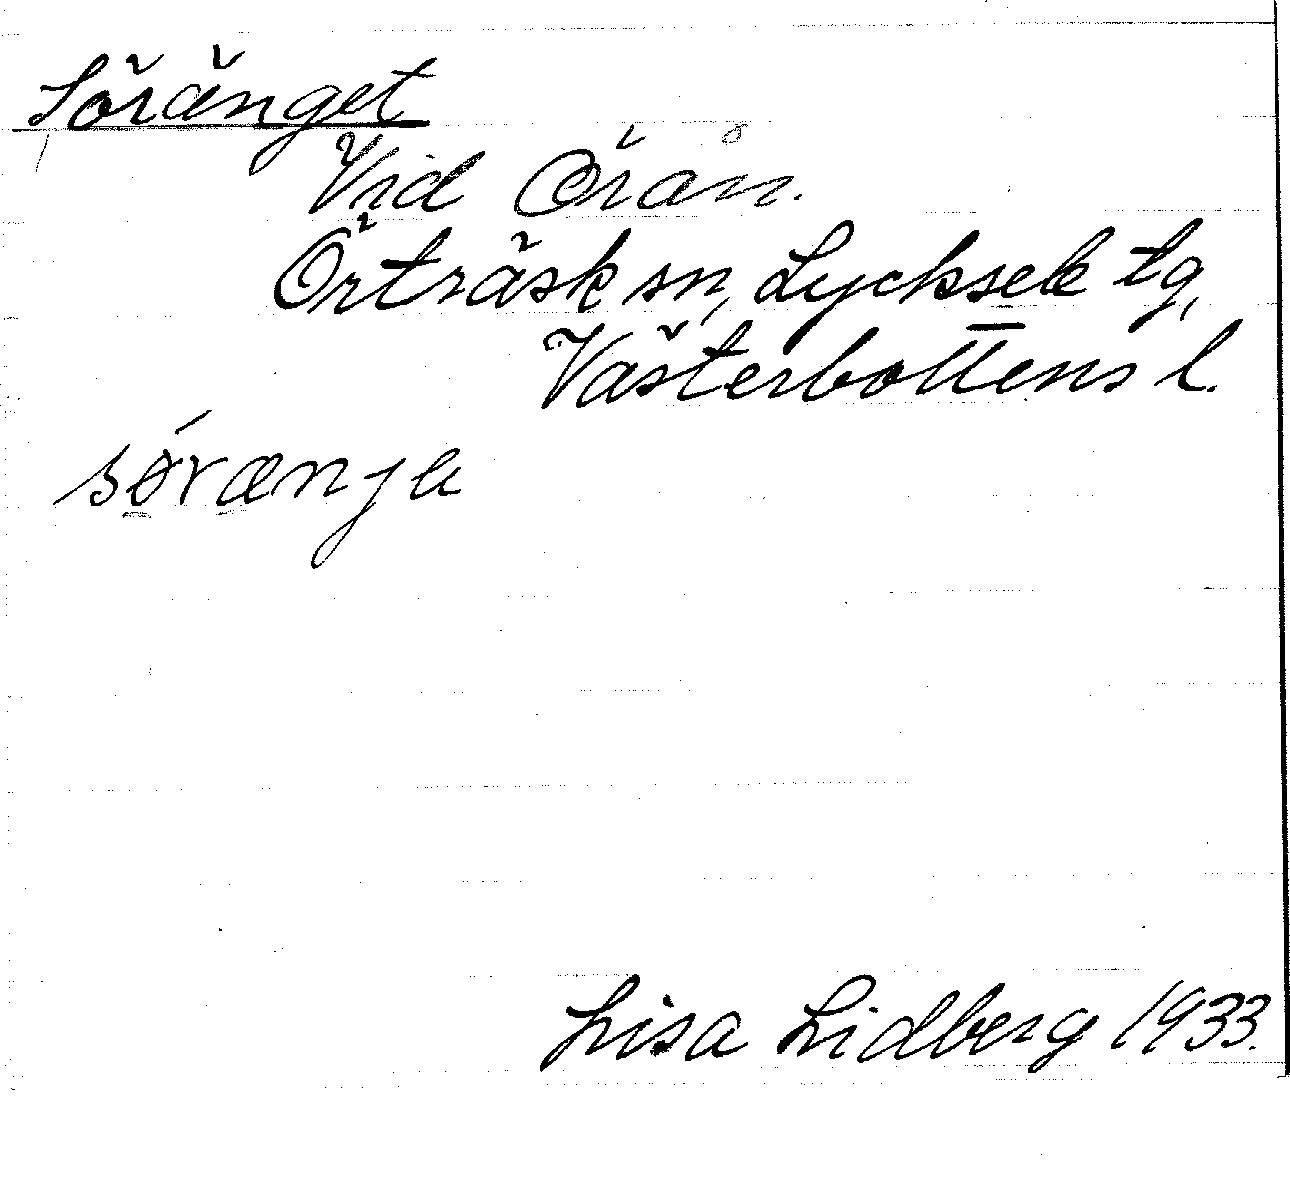 Söränget
Vid Örån.
Örträsk sn, Lycksele tg,
Västerbottens l.
sǿrænja
Lisa Lidberg 1933.